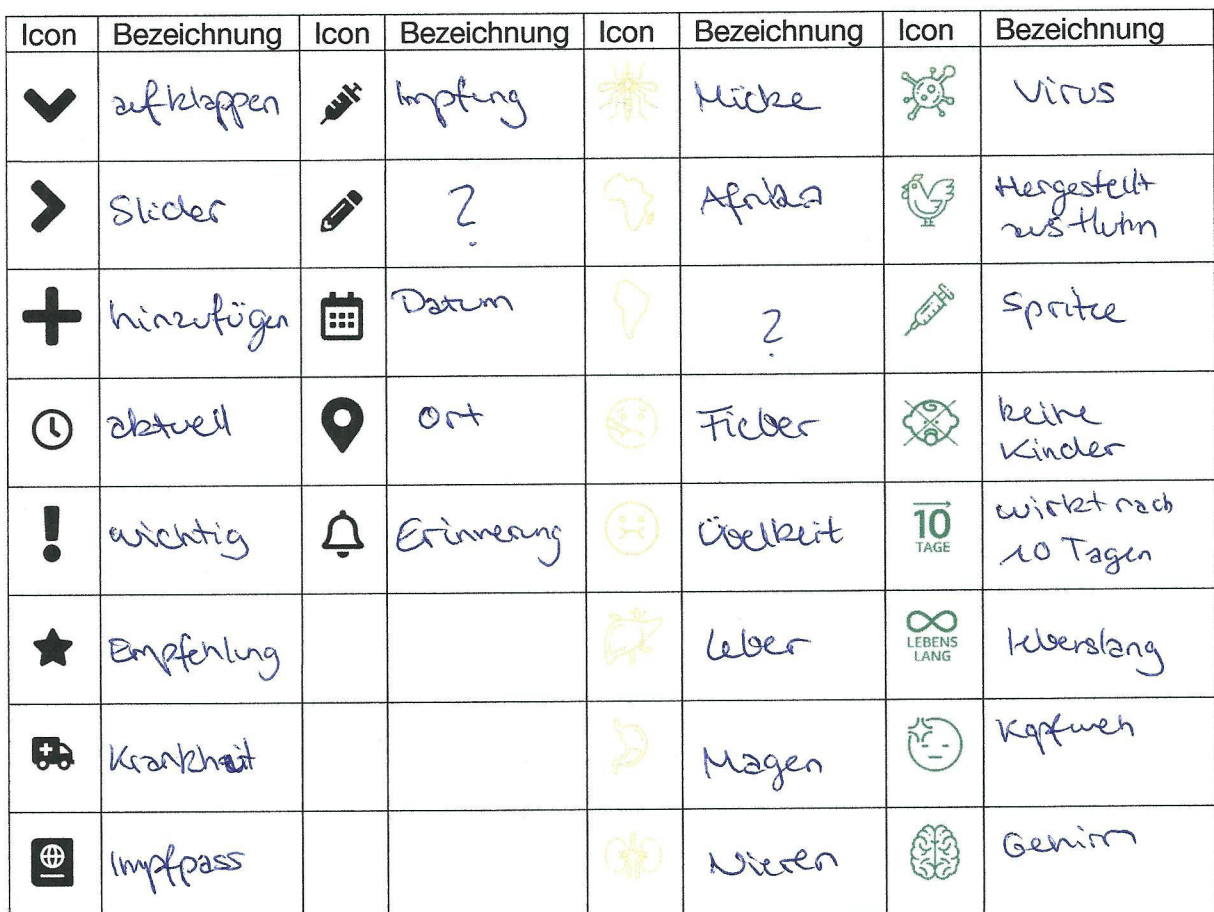 Icon Bezeichnung Icon Bezeichnung Icon Bezeichnung Icon Bezeichnung
aufklappen Impfung Mücke Virus
Slider ? Afrika Hergestellt
aus Huhn
hinzufügen Datum ? Spritze
aktuell Ort Fieber keine
Kinder
wichtig Erinnerung Übelkeit 10 TAGE wirkt nach
10 Tagen
Empfehlung Leber LEBENS lebenslang
LANG
Krankheit Magen Kopfweh
Impfpass Nieren Gehirn